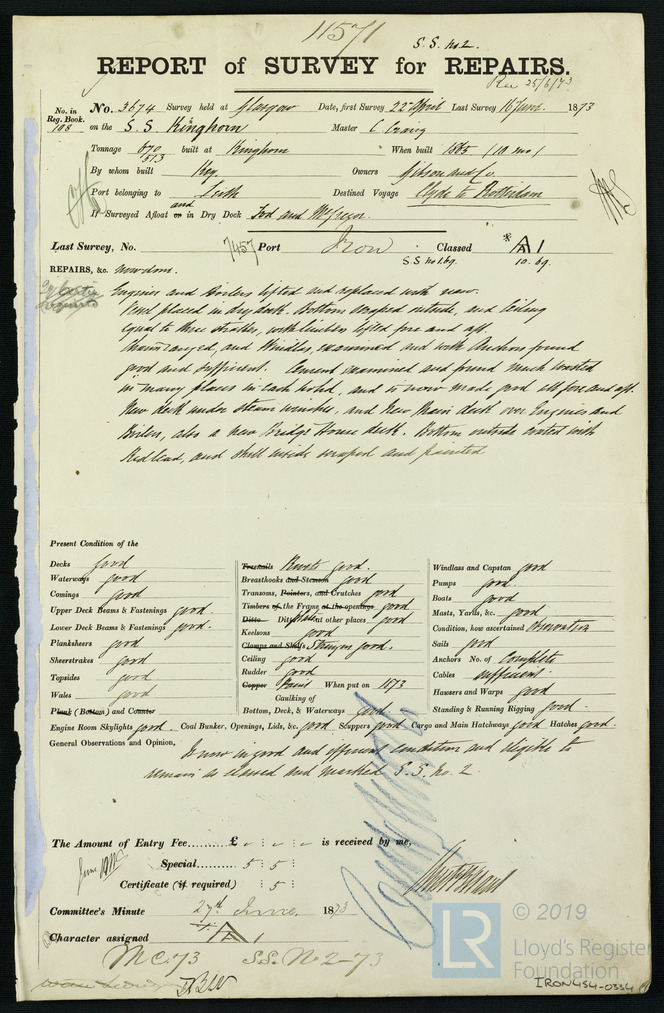 11571
S.S. No 2.
REPORT of SURVEY for REPAIRS.
Rec 25/6/73
No. in Reg. Book. 108
No. 3674 Survey held at Glasgow Date, first Survey 22 April Last Survey 16 June 1873
on the S.S. Kinghorn Master C. Craig
Tonnage 670 513 built at Kinghorn When built 1865 (10 mo)
By whom built Key Owners Gibson and Co.
Port belonging to Leith Destined Voyage Clyde to Rotterdam
If Surveyed Afloat and or in Dry Dock Tod and McGregor
Last Survey, No. 7457 Port Iron Classed A 1
S S No 1. 69. 10. 69.
REPAIRS, &c. now done.
Engines and Boilers lifted and replaced with new.
Vessel placed in dry dock. Bottom scraped outside, and Ceiling
equal to three Strakes, with limbers lifted fore and aft.
Chains ranged, and Windlass examined and with Anchors found
good and sufficient. Cement examined and found much wasted
in many places in each hold, and is now made good all fore and aft.
New deck under steam winches, and New Main deck over Engines and
Boilers, also a new Bridge House deck. Bottom outside coated with
Red lead, and Shell inside scraped and painted
Present Condition of the
Decks good
Waterways good
Comings good
Upper Deck Beams & Fastenings good.
Lower Deck Beams & Fastenings good.
Planksheers good
Sheerstrakes good
Topsides good
Wales good
Plank (Bottom) and Counter
Treenails Rivets good.
Breasthooks and Stemson good
Transoms, Pointers, and Crutches good
Timbers of the Frame at the openings good
Ditto Ditto at other places good
Keelsons good
Clamps and Shelfs Stringers good.
Ceiling good
Rudder good
Copper Paint When put on 1873
Caulking of
Bottom, Deck, & Waterways good
Windlass and Capstan good
Pumps good.
Boats good
Masts, Yards, &c. good
Condition, how ascertained Observation
Sails good
Anchors No. of Complete
Cables sufficient
Hawsers and Warps good
Standing & Running Rigging good.
Engine Room Skylights good. Coal Bunker, Openings, Lids, &c. good. Scuppers good. Cargo and Main Hatchways good Hatches good.
General Observations and Opinion, Is now in good and efficient condition and eligible to
remain as classed and marked S.S. No. 2.
The Amount of Entry Fee......... £ is received by me,
Special......... 5 : 5 :
Certificate (if required) : 5 :
Committee's Minute 27th June 1873
Character assigned A 1
MC. 73 S.S. No 2-73
© 2019
LR
Lloyd's Register
Foundation
IRON454-0334